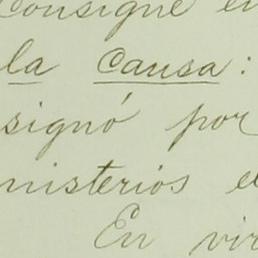 Consigne en
la causa:
signó por
nisterios e
En vir